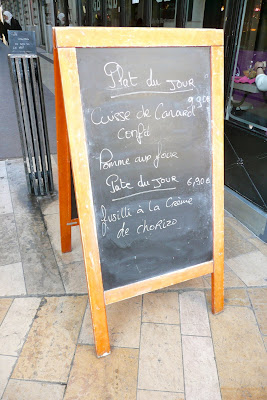 Plat du Jour
9,90€
Cuisse de Canard
Confit
Pomme aux four
Pate du jour 6,90€
fusilli à la Crème
de chorizo